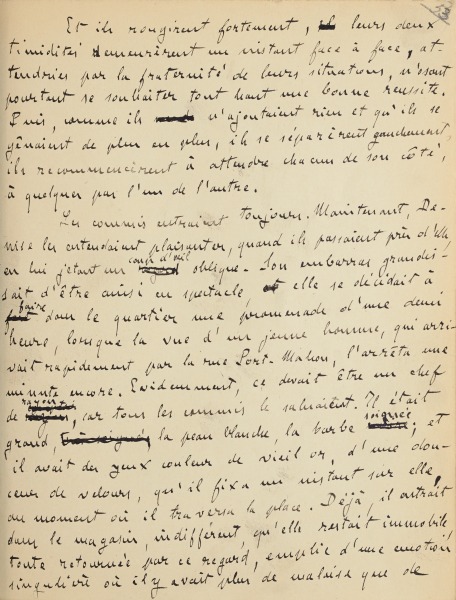 Et ils rougirent fortement, leurs deux
timidités demeurèrent un instant face à face, at-
tendries par la fraternité de leurs situations, n'osant
pourtant se souhaiter tout haut une bonne réussite.
Puis, comme ils n'ajoutaient rien et qu'ils se
gênaient de plus en plus, ils se séparèrent gauchement,
ils recommencèrent à attendre chacun de son côté,
à quelques pas l'un de l'autre.
Les commis entraient toujours. Maintenant, De-
nise les entendaient plaisanter, quand ils passaient près d'elle
en lui jetant un coup d'œil oblique. Son embarras grandis-
sait d'être ainsi en spectacle, et elle se décidait à
faire dans le quartier une promenade d'une demi
heure, lorsque la vue d'un jeune homme, qui arri-
vait rapidement par la rue Port-Mahon, l'arrêta une
minute encore. Evidemment, ce devait être un chef
de rayon, car tous les commis le saluaient. Il était
grand, la peau blanche, la barbe soignée; et
il avait des yeux couleur de vieil or, d'une dou-
ceur de velours, qu'il fixa un instant sur elle,
au moment où il traversa la place. Déjà, il entrait
dans le magasin, indifférent, qu'elle restait immobile
toute retournée par ce regard, emplie d'une émotion
singulière où il y avait plus de malaise que de